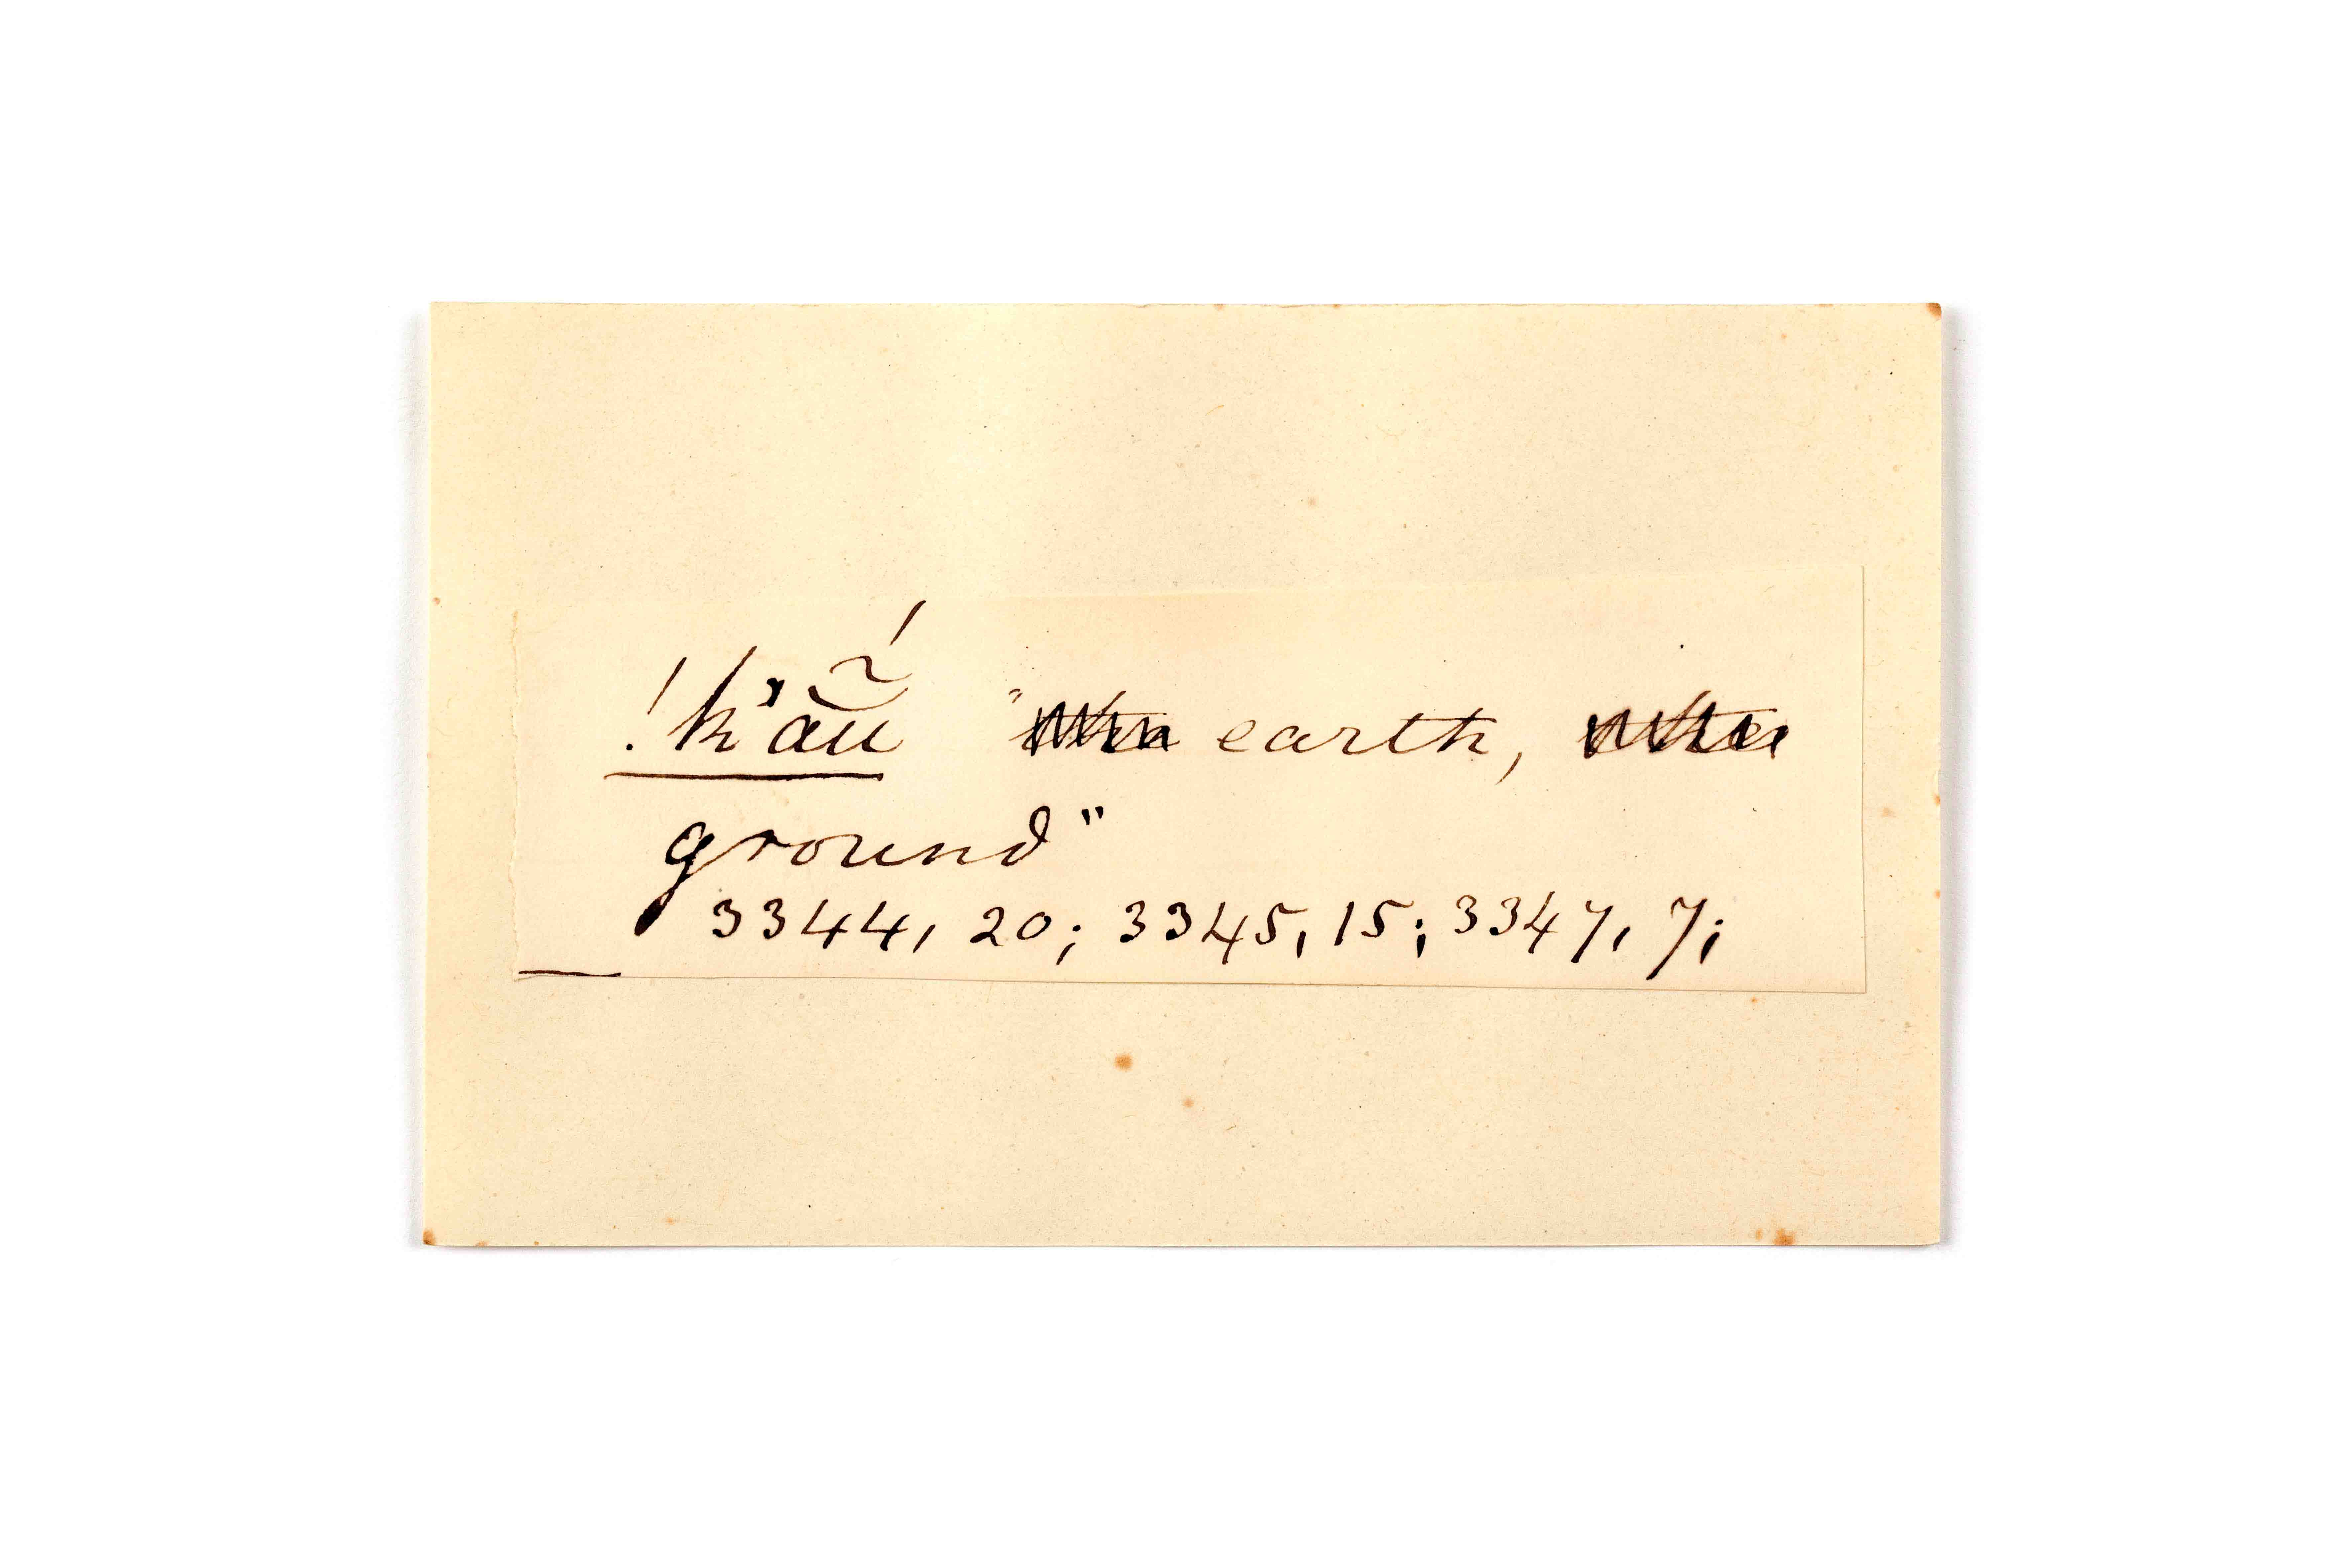 !k”ãŭ́ " earth,
ground"
3344, 20; 3345, 15; 3347, 7;